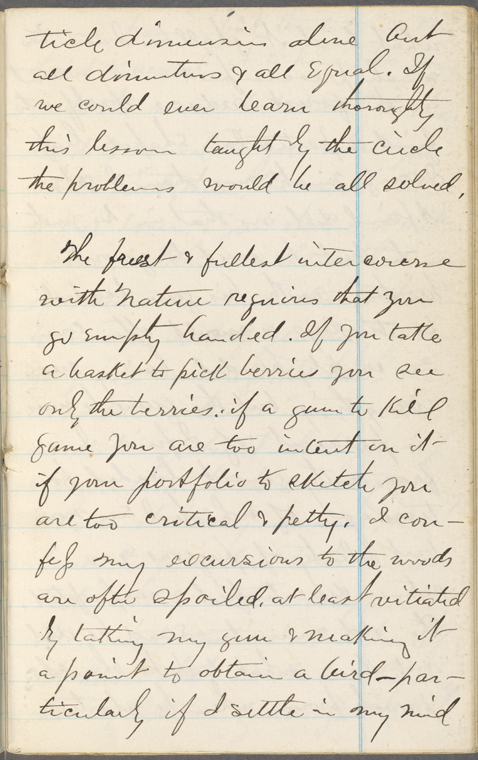 ticle dimensions alone but
all diameters & all Equal. If
we could ever learn thoroughly
this lesson taught by the circle
the problems would be all solved.
The freest & fullest intercourse
with Nature requires that you
go empty handed. If you take
a basket to pick berries you see
only the berries. if a gun to kill
game you are too intent on it-
if your portfolio to sketch you
are too critical & petty. I con-
fess my excursions to the woods
are often spoiled, at least vitiated
by taking my gun & making it
a point to obtain a bird - par-
ticularly if I settle in my mind